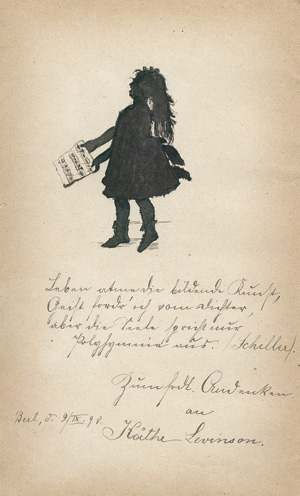 Leben atme die bildende Kunst,
Geist fordr' ich vom Dichter
Aber die Seele spricht nur
Polyhymnia aus. (Schiller.)
Zum frdl. Andenken
an
Käthe Levinson.
Berl., d. 9/IX 98.